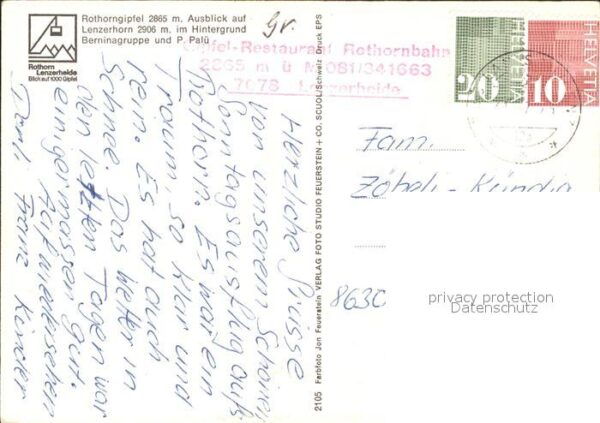 Rothorngipfel 2865 m, Ausblick auf
Lenzerhorn 2906 m, im Hintergrund
Berninagruppe und P. Palü
Rothorn
Lenzerheide
Blick auf 1000 Gipfel
Gipfel-Restaurant Rothornbahn
2865 m ü M 081/341663
7078 Lenzerheide
HELVETIA
20
HELVETIA
10
Herzliche Grüsse
von unserem schönen
Sonntagsausflug aufs
Rothorn. Es war ein
Traum, so klar und
rein. Es hat auch
Schnee. Das Wetter in
den letzten Tagen war
einigermassen gut.
Aufwiedersehen
Franz Kinder
2105 Farbfoto Jon Feuerstein VERLAG FOTO STUDIO FEUERSTEIN + CO. SCUOL/Schweiz Druck EPS
Fam.
8630
privacy protection
Datenschutz